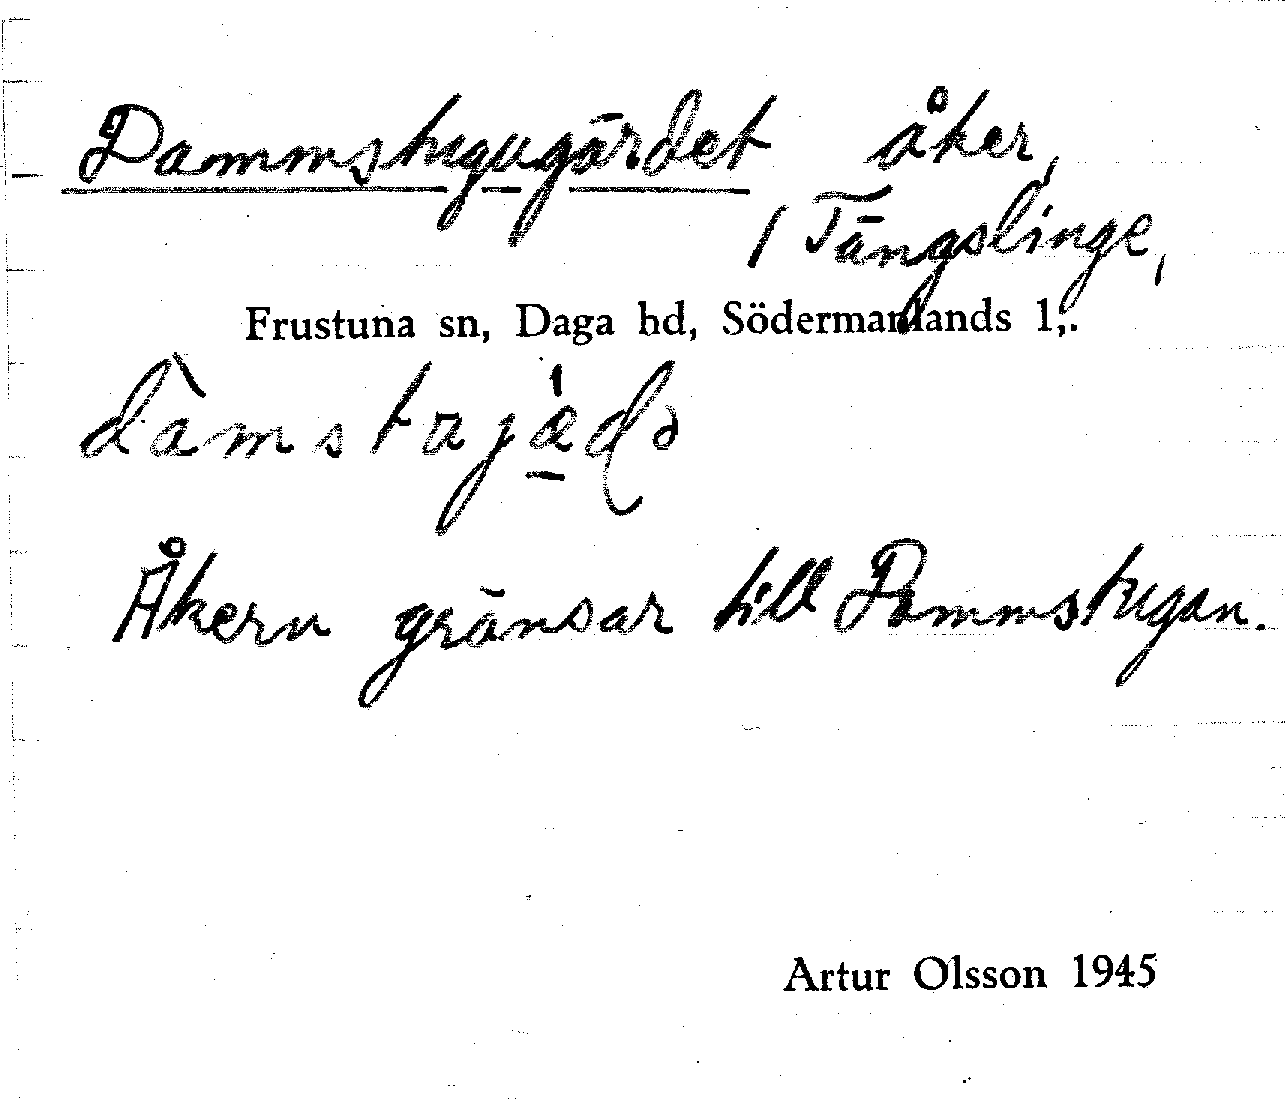 Dammstugugärdet åker,
/ Tängslinge,
Frustuna sn, Daga hd, Södermanlands l,.
Åkern gränsar till Dammstugan.
Artur Olsson 1945